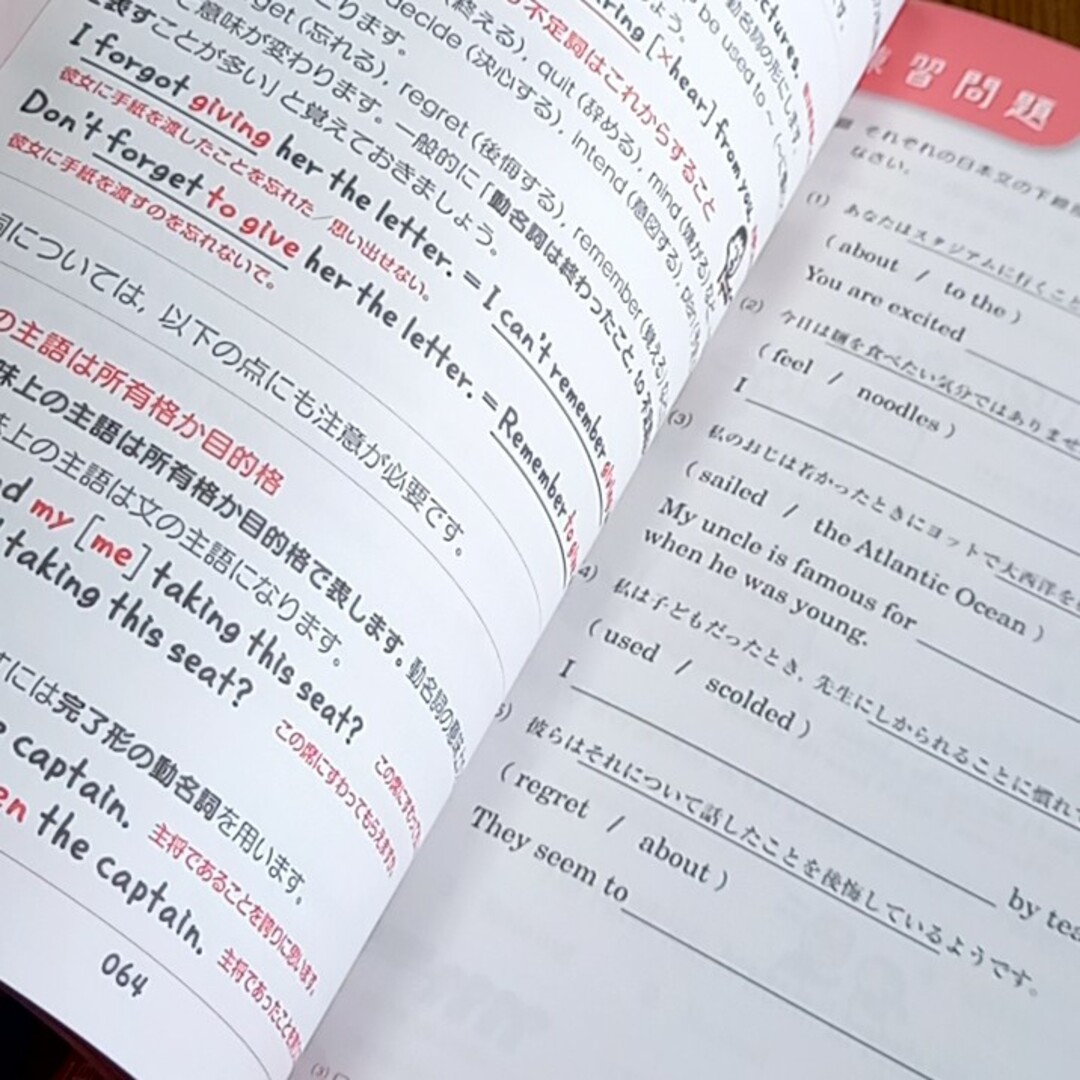 ctures.
動名詞の形にします。
be used to ~
ring [×hear] from you
よう。
不定詞はこれからすること
(終える), quit (辞める), mind
decide (決心する), intend (意図する), plan
ります。
get (忘れる), regret (後悔する), remember
意味が変わります。一般的に「動名詞は終わったこと, to 不定
表すことが多い」と覚えておきましょう。
I forgot giving her the letter. = I can't remember
彼女に手紙を渡したことを忘れた／思い出せない。
Don't forget to give her the letter. = Remember to
彼女に手紙を渡すのを忘れないで。
詞については, 以下の点にも注意が必要です。
の主語は所有格か目的格
味上の主語は所有格か目的格で表します。動名詞の意味
味上の主語は文の主語になります。
nd my [me] taking this seat?
taking this seat?
この席にすわってもらえますか。
には完了形の動名詞を用います。
captain.
主将であることを誇りに思います。
en the captain.
主将であったことを
064
習問題
それぞれの日本文の下線
なさい。
(1) あなたはスタジアムに行くこと
( about / to the )
You are excited
(2) 今日は麺を食べたい気分ではありませ
( feel / noodles )
I
(3) 私のおじは若かったときにヨットで大西洋を
( sailed / the Atlantic Ocean )
My uncle is famous for
when he was young.
4) 私は子どもだったとき, 先生にしかられることに慣れて
( used / scolded )
I by tea
5) 彼らはそれについて話したことを後悔しているようです。
( regret / about )
They seem to